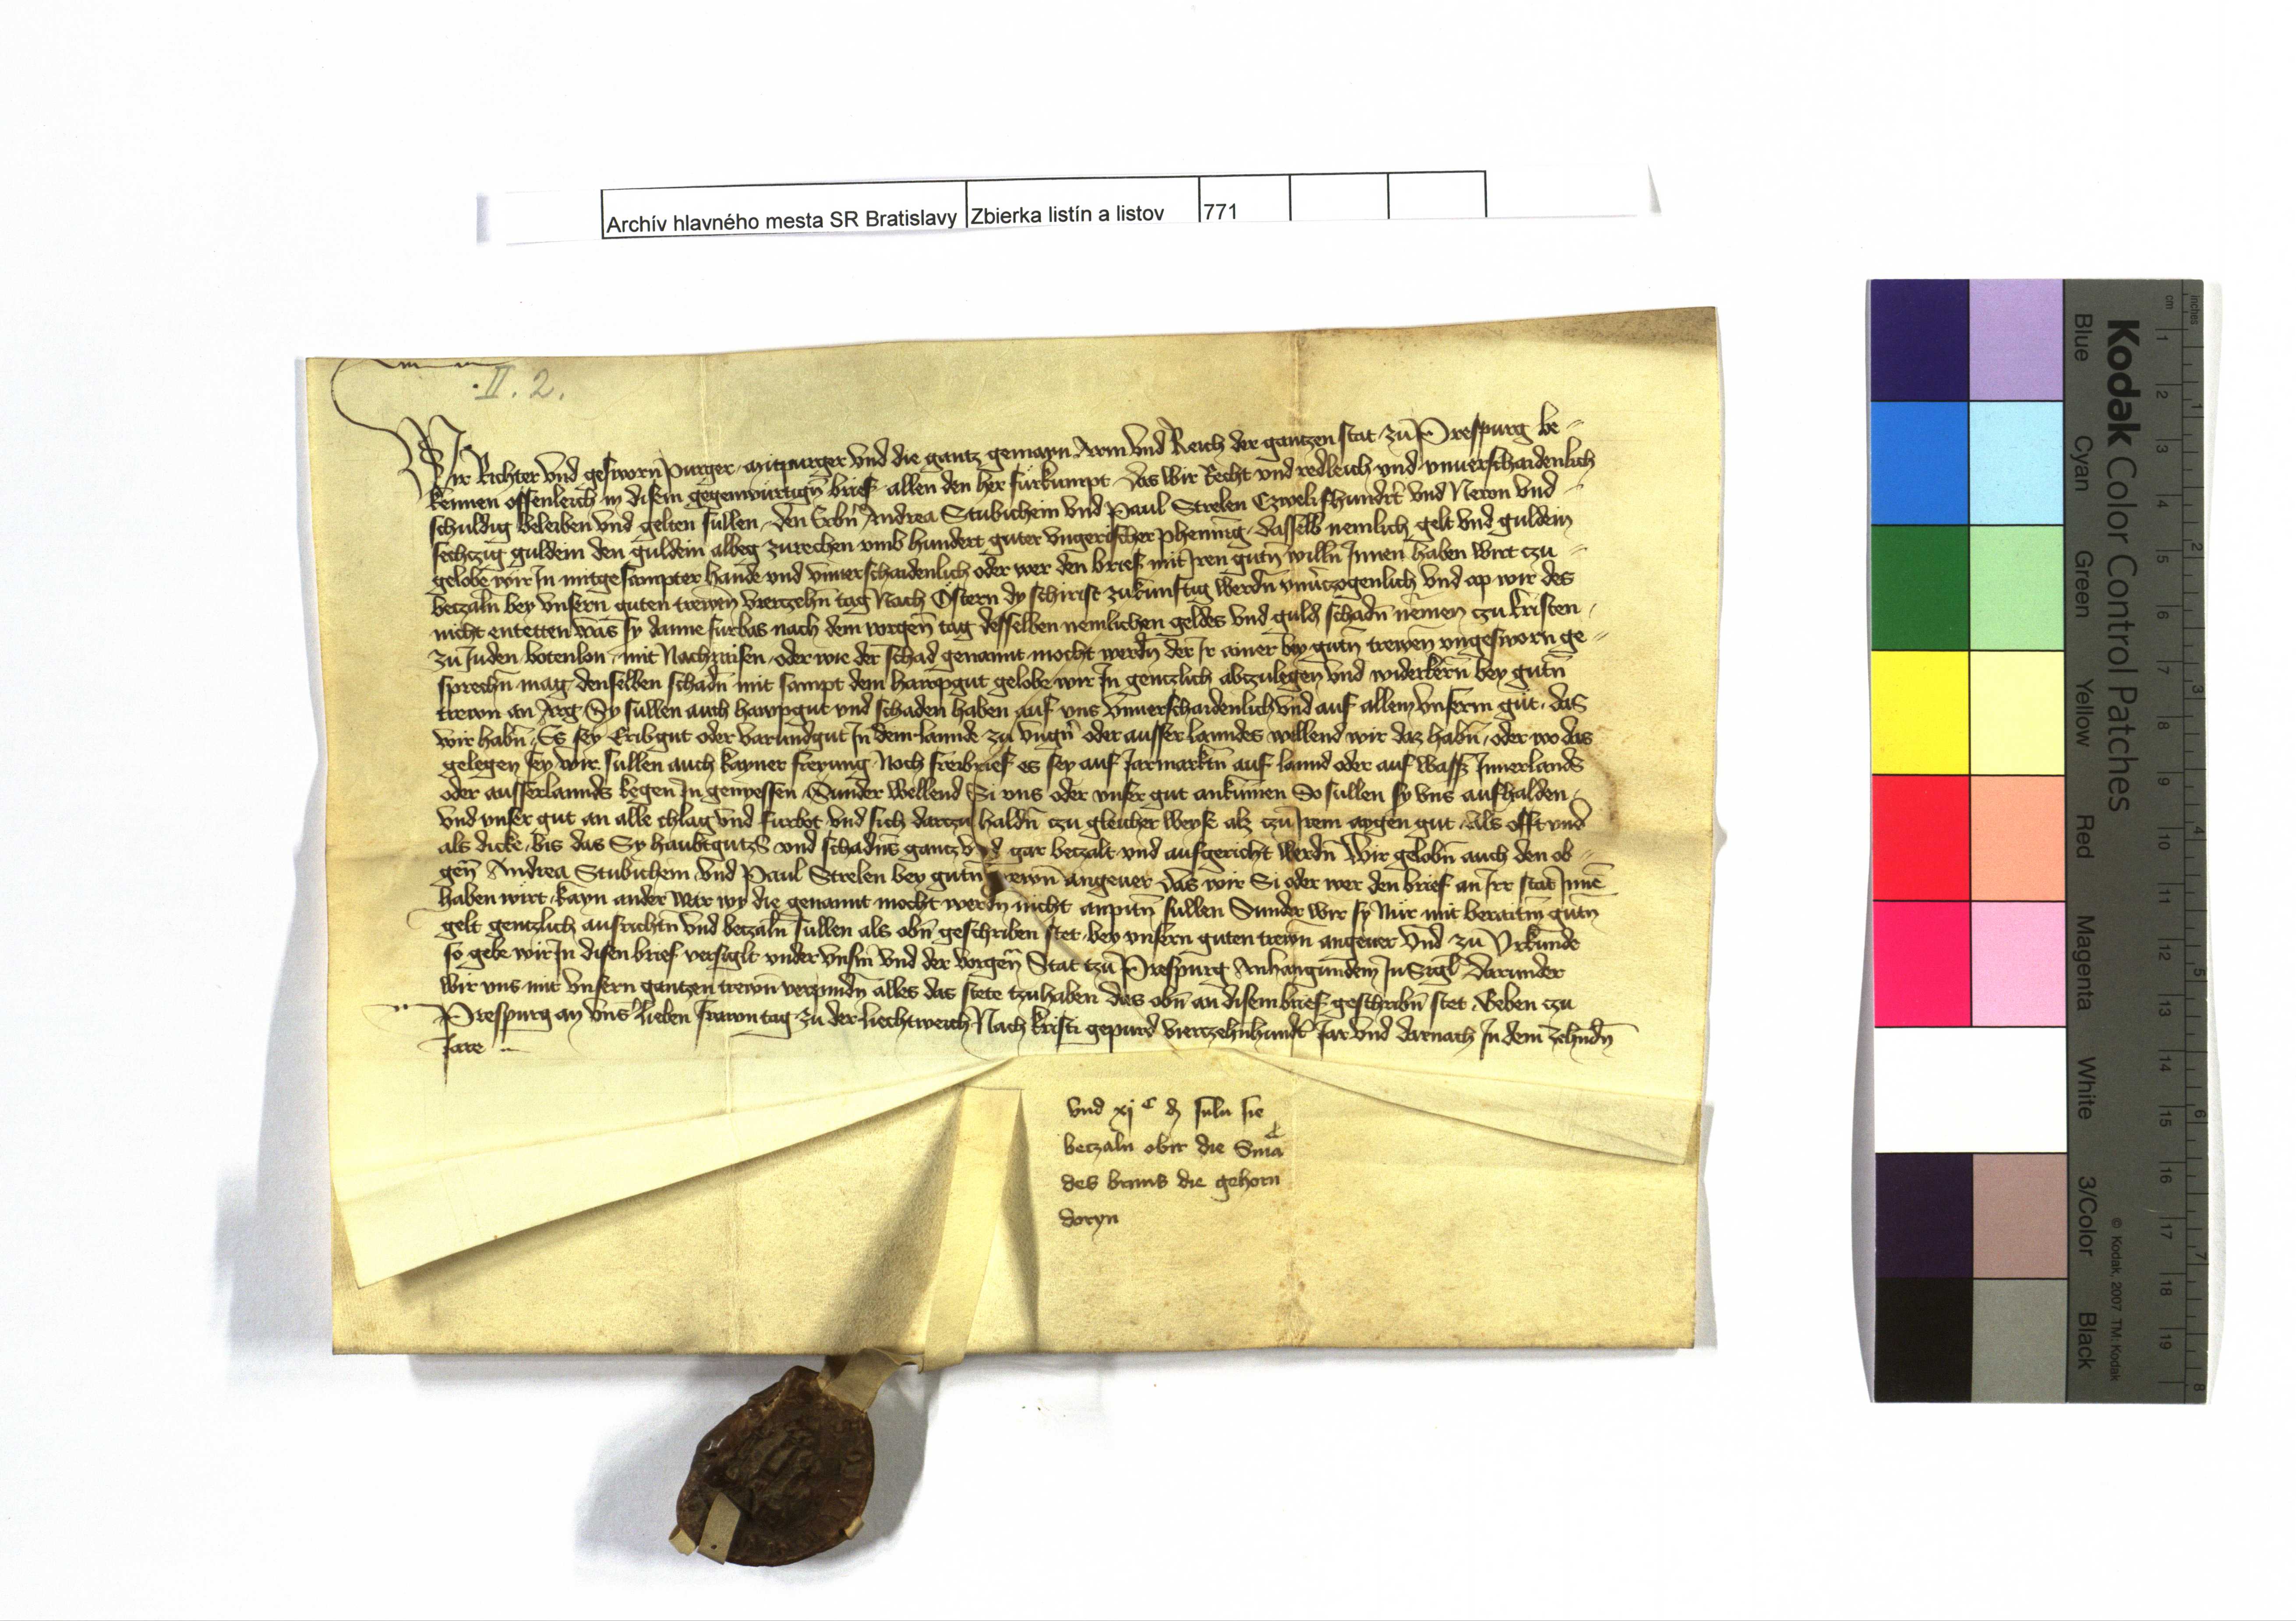 Archív hlavného mesta SR Bratislavy Zbierka listín a listov 771
II. 2.
Wir Richter vnd gesworn purger mitpurger vnd die gantz gemayn Arm vnd Reich der gantzen stat zu Prespurg be-
kennen offenleich in disem gegenwurtign̄ brief allen den her furkumpt das wir Recht vnd redleich vnd vnuerschaidenlich
schuldig beleiben vnd gelten sullen den Erbn̄ Andrea Stubichein vnd Paul Strelen Czwelifhundt vnd Newn vnd
sechczig guldein den guldein albeg zurechen vmb hundert guter vngerischer phennig dasselb nemlich gelt vnd guldein
gelobe wir In mitgesampter hande vnd vnuerschaidenlich oder wer den brief mit Iren gutn̄ willn̄ Innen haben wirt czu
beczaln̄ bey vnsern guten trewn̄ vierczehn tag Nach Ostern dy schirist zukunftig werdn̄ vnuerczogenlich vnd ap wir des
nicht entetten was sy danne furbas nach dem vorgen̄ tag desselben nemlichen geldes vnd guld schadn̄ nemen czu kristen
zu Juden botenlon mit Nachraisen oder wie der schad genannt mocht werdn̄ der Ir ainer bey gutn̄ trewen vngesworn ge-
sprechn̄ mag denselben schadn̄ mit sampt dem hawpgut gelobe wir In gentzlich abczulegen vnd widerkern̄ bey gutn̄
trewn an Arg Sy sullen auch hawpgut vnd schaden haben auf vns vnuerschaidenlich vnd auf allem vnserm gut das
wir habn̄ Es sey Eribgut oder varundgut In dem lannde zu vngn̄ oder ausser lanndes wellend wir daz habn̄ oder wo das
gelegen sey wir sullen auch kayner freyung Noch freibrief es sey auf Jarmarktn̄ auf lannd oder auf wass Innerlands
oder ausserlannds kegen In genyessen Sunder wellend Si vns oder vnser gut ankumen So sullen sy vns aufhalden
vnd vnser gut an alle chlag vnd furbot vnd sich darczu haldn̄ czu gleicher weyse alz czu Irem aygen gut Als offt vnd
als dicke bis das Sy haubtgutzs vnd schadns gantz vnd gar beczalt vnd ausgericht werdn̄ Wir gelobn̄ auch den ob-
gen̄ Andrea Stubichein vnd Paul Strelen bey gutn̄ trewn̄ angeuer das wir Si oder wer den brief an Irr stat Inne
haben wirt kayn ander war wy die genannt mocht werdn̄ nicht anpitn̄ sullen Sunder wir sy Nur mit beraitm̄ gutn̄
gelt gentzlich ausrichtn̄ vnd beczaln̄ sullen als obn̄ geschriben stet bey vnsern guten trewn̄ angeuer vnd zu Vrkunde
so gebe wir In disen brief versiglt vnder vnsm̄ vnd der vorgen̄ Stat tzu Prespurg Anhangundem Insigl darunder
wir vns mit vnsern gantzen trewn̄ verpindn̄ alles das stete tzuhaben das obn̄ an disem brief geschribn̄ stet Geben czu
Prespurg an vns̄ lieben frawn tag zu der liechtweich Nach kristi gepurd vierczehnhundt Jar vnd darnach In dem zehndn̄
Jare
vnd xj c ₰ suln sie
beczaln obir die Sm̄a
des briuis die gehorn
doryn
Kodak Color Control Patches
Blue Cyan Green Yellow Red Magenta White 3/Color Black
© Kodak, 2007 TM: Kodak
inches 1 2 3 4 5 6 7 8
cm 1 2 3 4 5 6 7 8 9 10 11 12 13 14 15 16 17 18 19